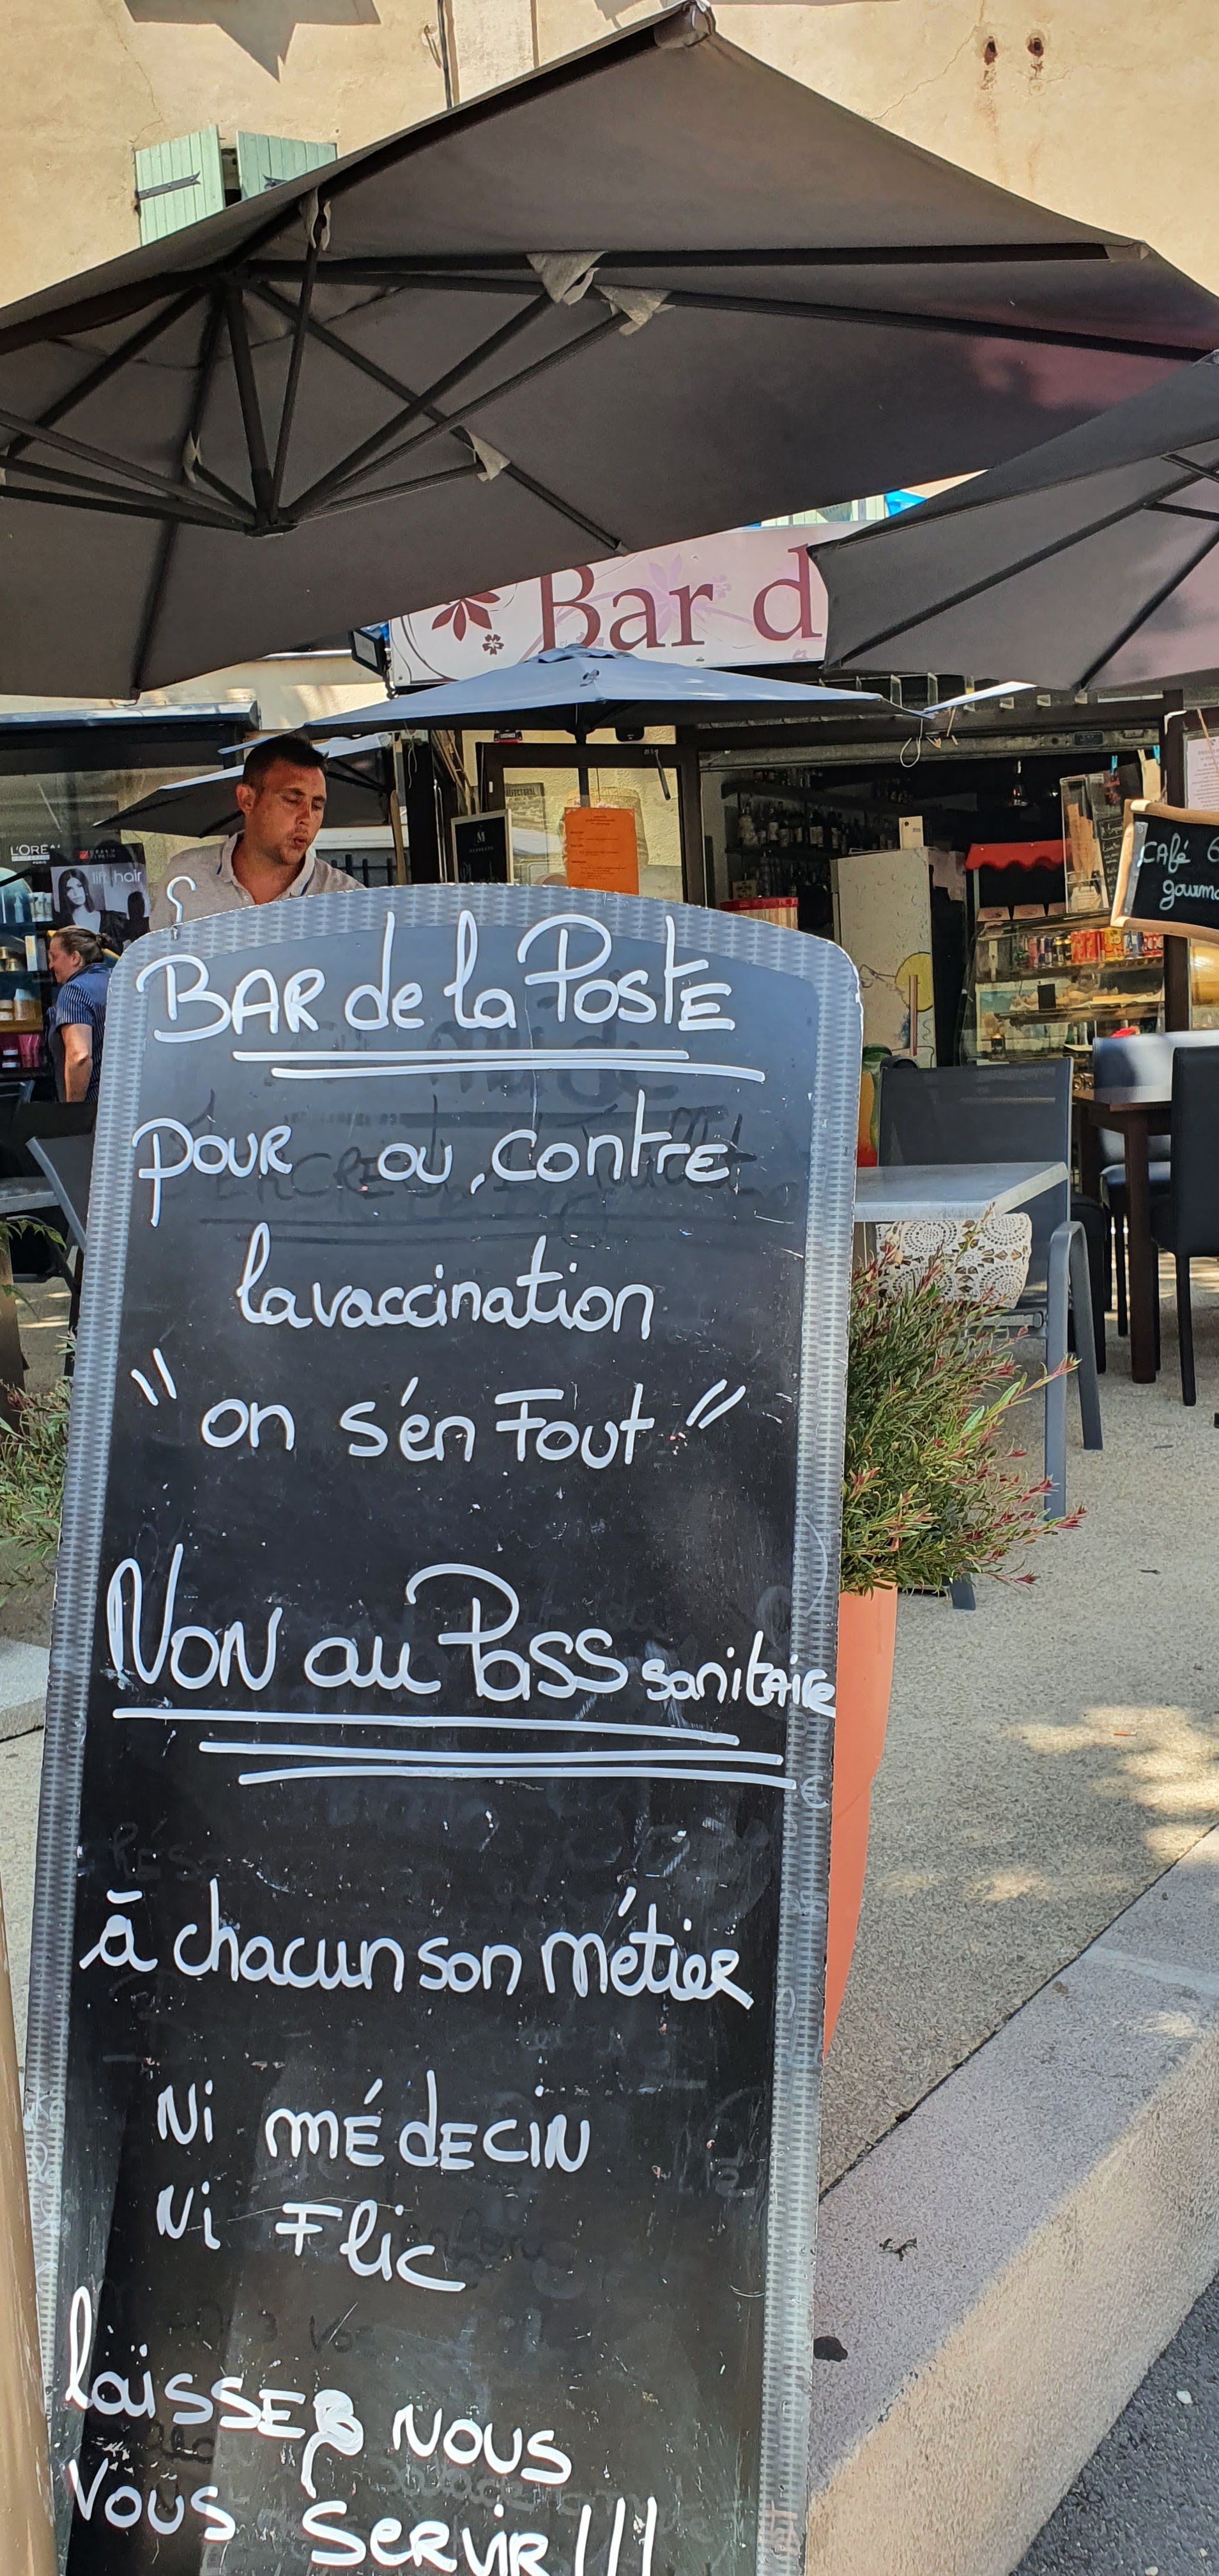 Bar d
L'ORÉAL
PARIS
hair
CAFé G
gourma
BAR de la PosTE
pour ou, contre
la vaccination
" on s'én Fout "
NoN au PasS sanitaire
à chacun son métier
Ni MÉdECiN
Ni Flic
laisseR NOUS
Vous servir !!!